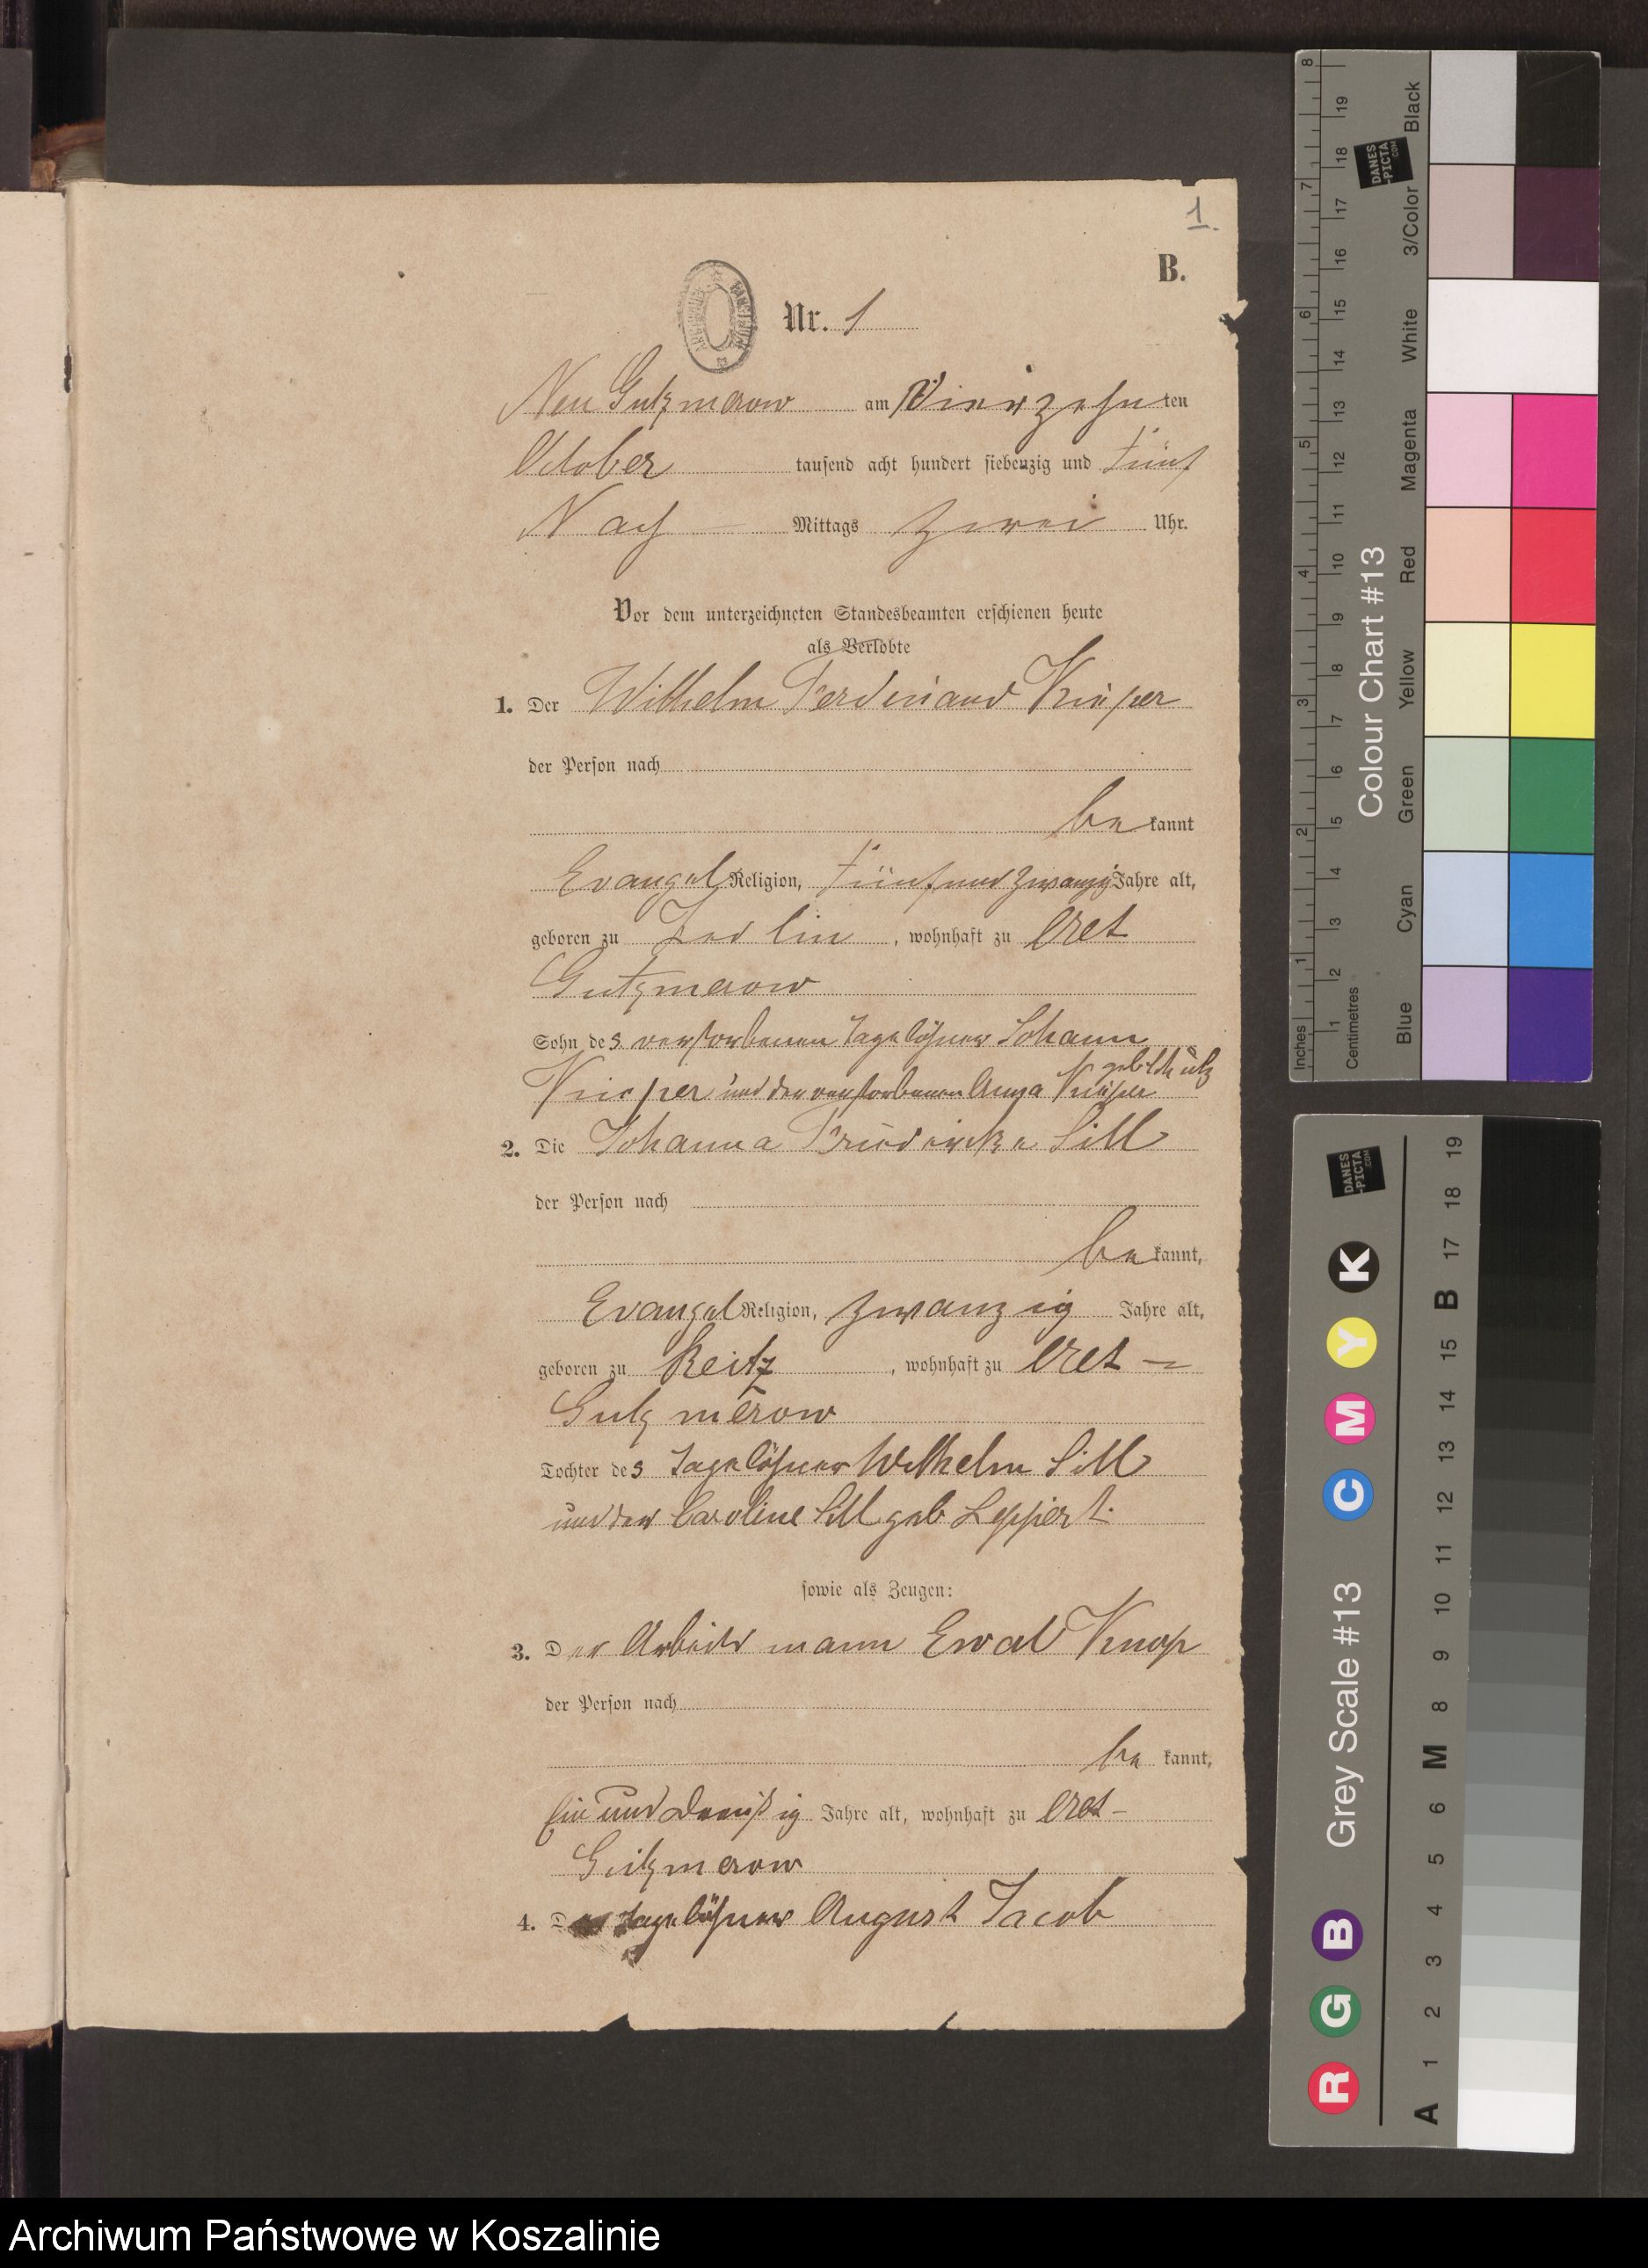 1.
B.
Nr. 1
Neu Gutzmerow am Vierzehn ten
October tausend acht hundert siebenzig und fünf
Nach Mittags Zwei Uhr.
Vor dem unterzeichneten Standesbeamten erschienen heute
als Verlobte
1. Der Wilhelm Ferdinand
der Person nach
be kannt
Evangel Religion, fünf und zwanzig Jahre alt,
geboren zu , wohnhaft zu
Gutzmerow
Sohn des verstorbenen Tagelöhner Johann
und der verstorbenen Anna geb Schütz
2. Die Johanna Friederike Sill
der Person nach
be kannt,
Evangel Religion, Zwanzig Jahre alt,
geboren zu Reitz , wohnhaft zu
Gutzmerow
Tochter des Tagelöhner Wilhelm Sill
und der Caroline Sill geb Leppert.
sowie als Zeugen:
3. Der Arbeits mann Ewald Knop
der Person nach
be kannt,
Ein und Dreißig Jahre alt, wohnhaft zu
Gutzmerow
4. Der Tagelöhner August Jacob
Inches
Centimetres
Colour Chart #13
Blue Cyan Green Yellow Red Magenta White 3/Color Black
DANES
-PICTA
.COM
Grey Scale #13
R G B C M Y K
A 1 2 3 4 5 6 M 8 9 10 11 12 13 14 15 B 17 18 19
DANES
-PICTA
.COM
Archiwum Państwowe w Koszalinie